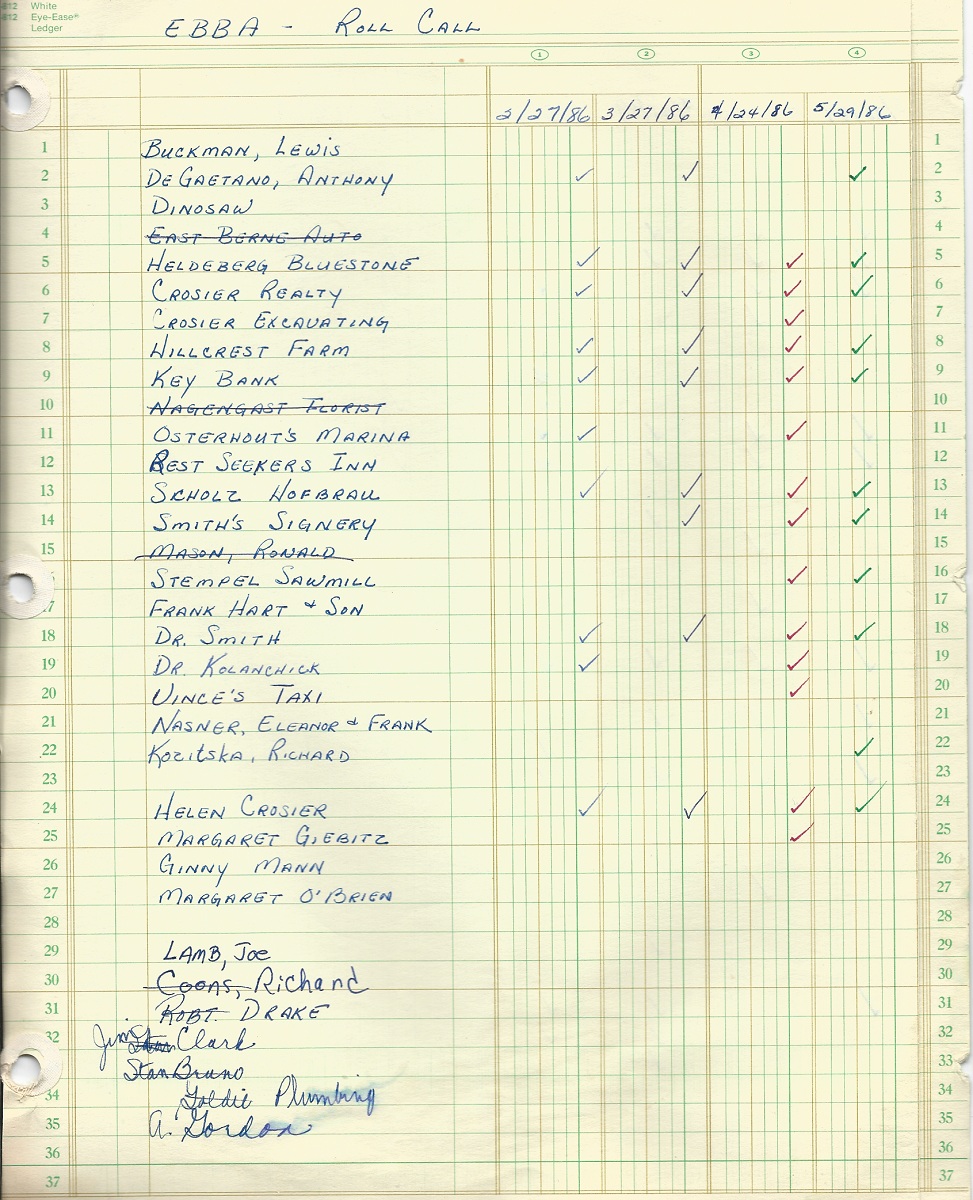 812 White
812 Eye-Ease®
Ledger
EBBA - ROLL CALL
1 2 3 4
2/27/86 3/27/86 4/24/86 5/29/86
1 BUCKMAN, LEWIS 1
2 DEGAETANO, ANTHONY ✓ ✓ ✓ 2
3 DINOSAW 3
4 EAST BERNE AUTO 4
5 HELDEBERG BLUESTONE ✓ ✓ ✓ ✓ 5
6 CROSIER REALTY ✓ ✓ ✓ ✓ 6
7 CROSIER EXCAVATING ✓ 7
8 HILLCREST FARM ✓ ✓ ✓ ✓ 8
9 KEY BANK ✓ ✓ ✓ ✓ 9
10 NAGENGAST FLORIST 10
11 OSTERHOUT'S MARINA ✓ ✓ 11
12 REST SEEKERS INN 12
13 SCHOLZ HOFBRAU ✓ ✓ ✓ ✓ 13
14 SMITH'S SIGNERY ✓ ✓ ✓ 14
15 MASON, RONALD 15
STEMPEL SAWMILL ✓ ✓ 16
17 FRANK HART + SON 17
18 DR. SMITH ✓ ✓ ✓ ✓ 18
19 DR. KOLANCHICK ✓ ✓ 19
20 VINCE'S TAXI ✓ 20
21 NASNER, ELEANOR & FRANK 21
22 KOZITSKA, RICHARD ✓ 22
23 23
24 HELEN CROSIER ✓ ✓ ✓ ✓ 24
25 MARGARET GIEBITZ ✓ 25
26 GINNY MANN 26
27 MARGARET O'BRIEN 27
28 28
29 LAMB, JOE 29
30 Coons, Richard 30
31 ROBT. DRAKE 31
32 Jim Stan Clark 32
Stan Bruno 33
34 Goldie Plumbing 34
35 A. Gordon 35
36 36
37 37